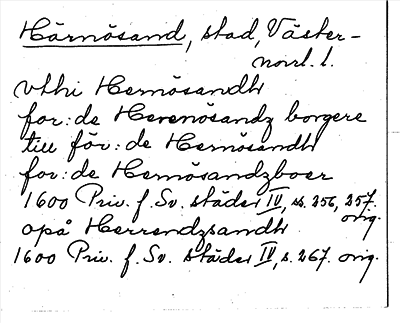 Härnösand, stad, Väster-
norrl. l.
vthi Hernösandh
for: de Herenösandz borgere
till för: de Hernösandh
for: de Hernösandzboer
1600 Priv. f. Sv. städer IV, ss. 256, 257.
orig.
opå Herrendzsandh
1600 Priv. f. Sv. städer IV, s. 267. orig.